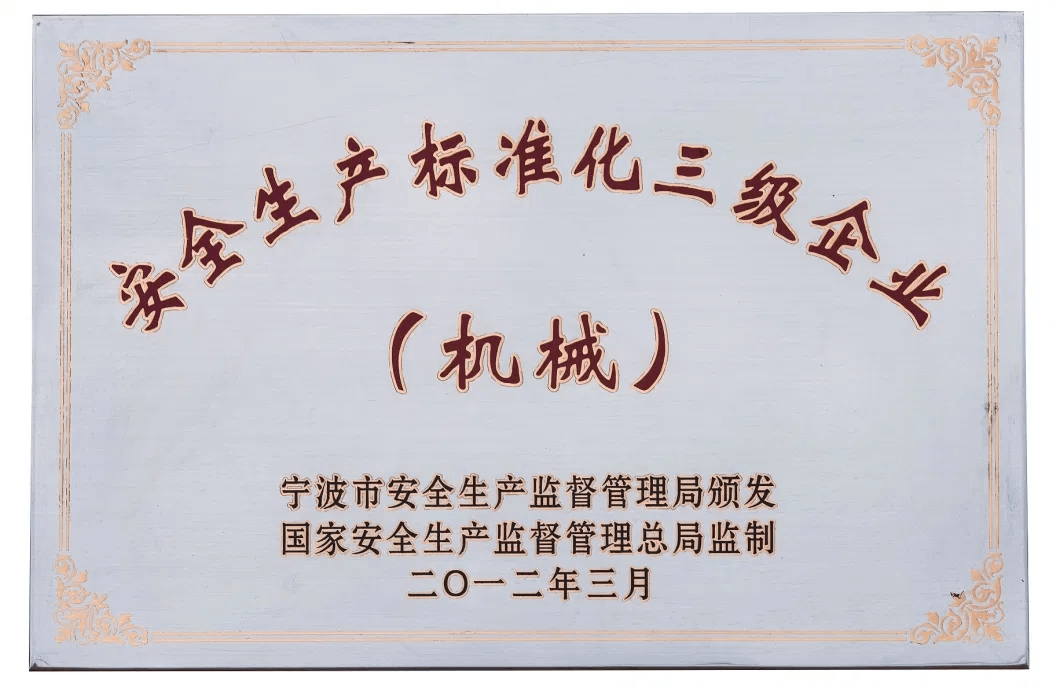 安全生产标准化三级企业
（机械）
宁波市安全生产监督管理局颁发
国家安全生产监督管理总局监制
二〇一二年三月